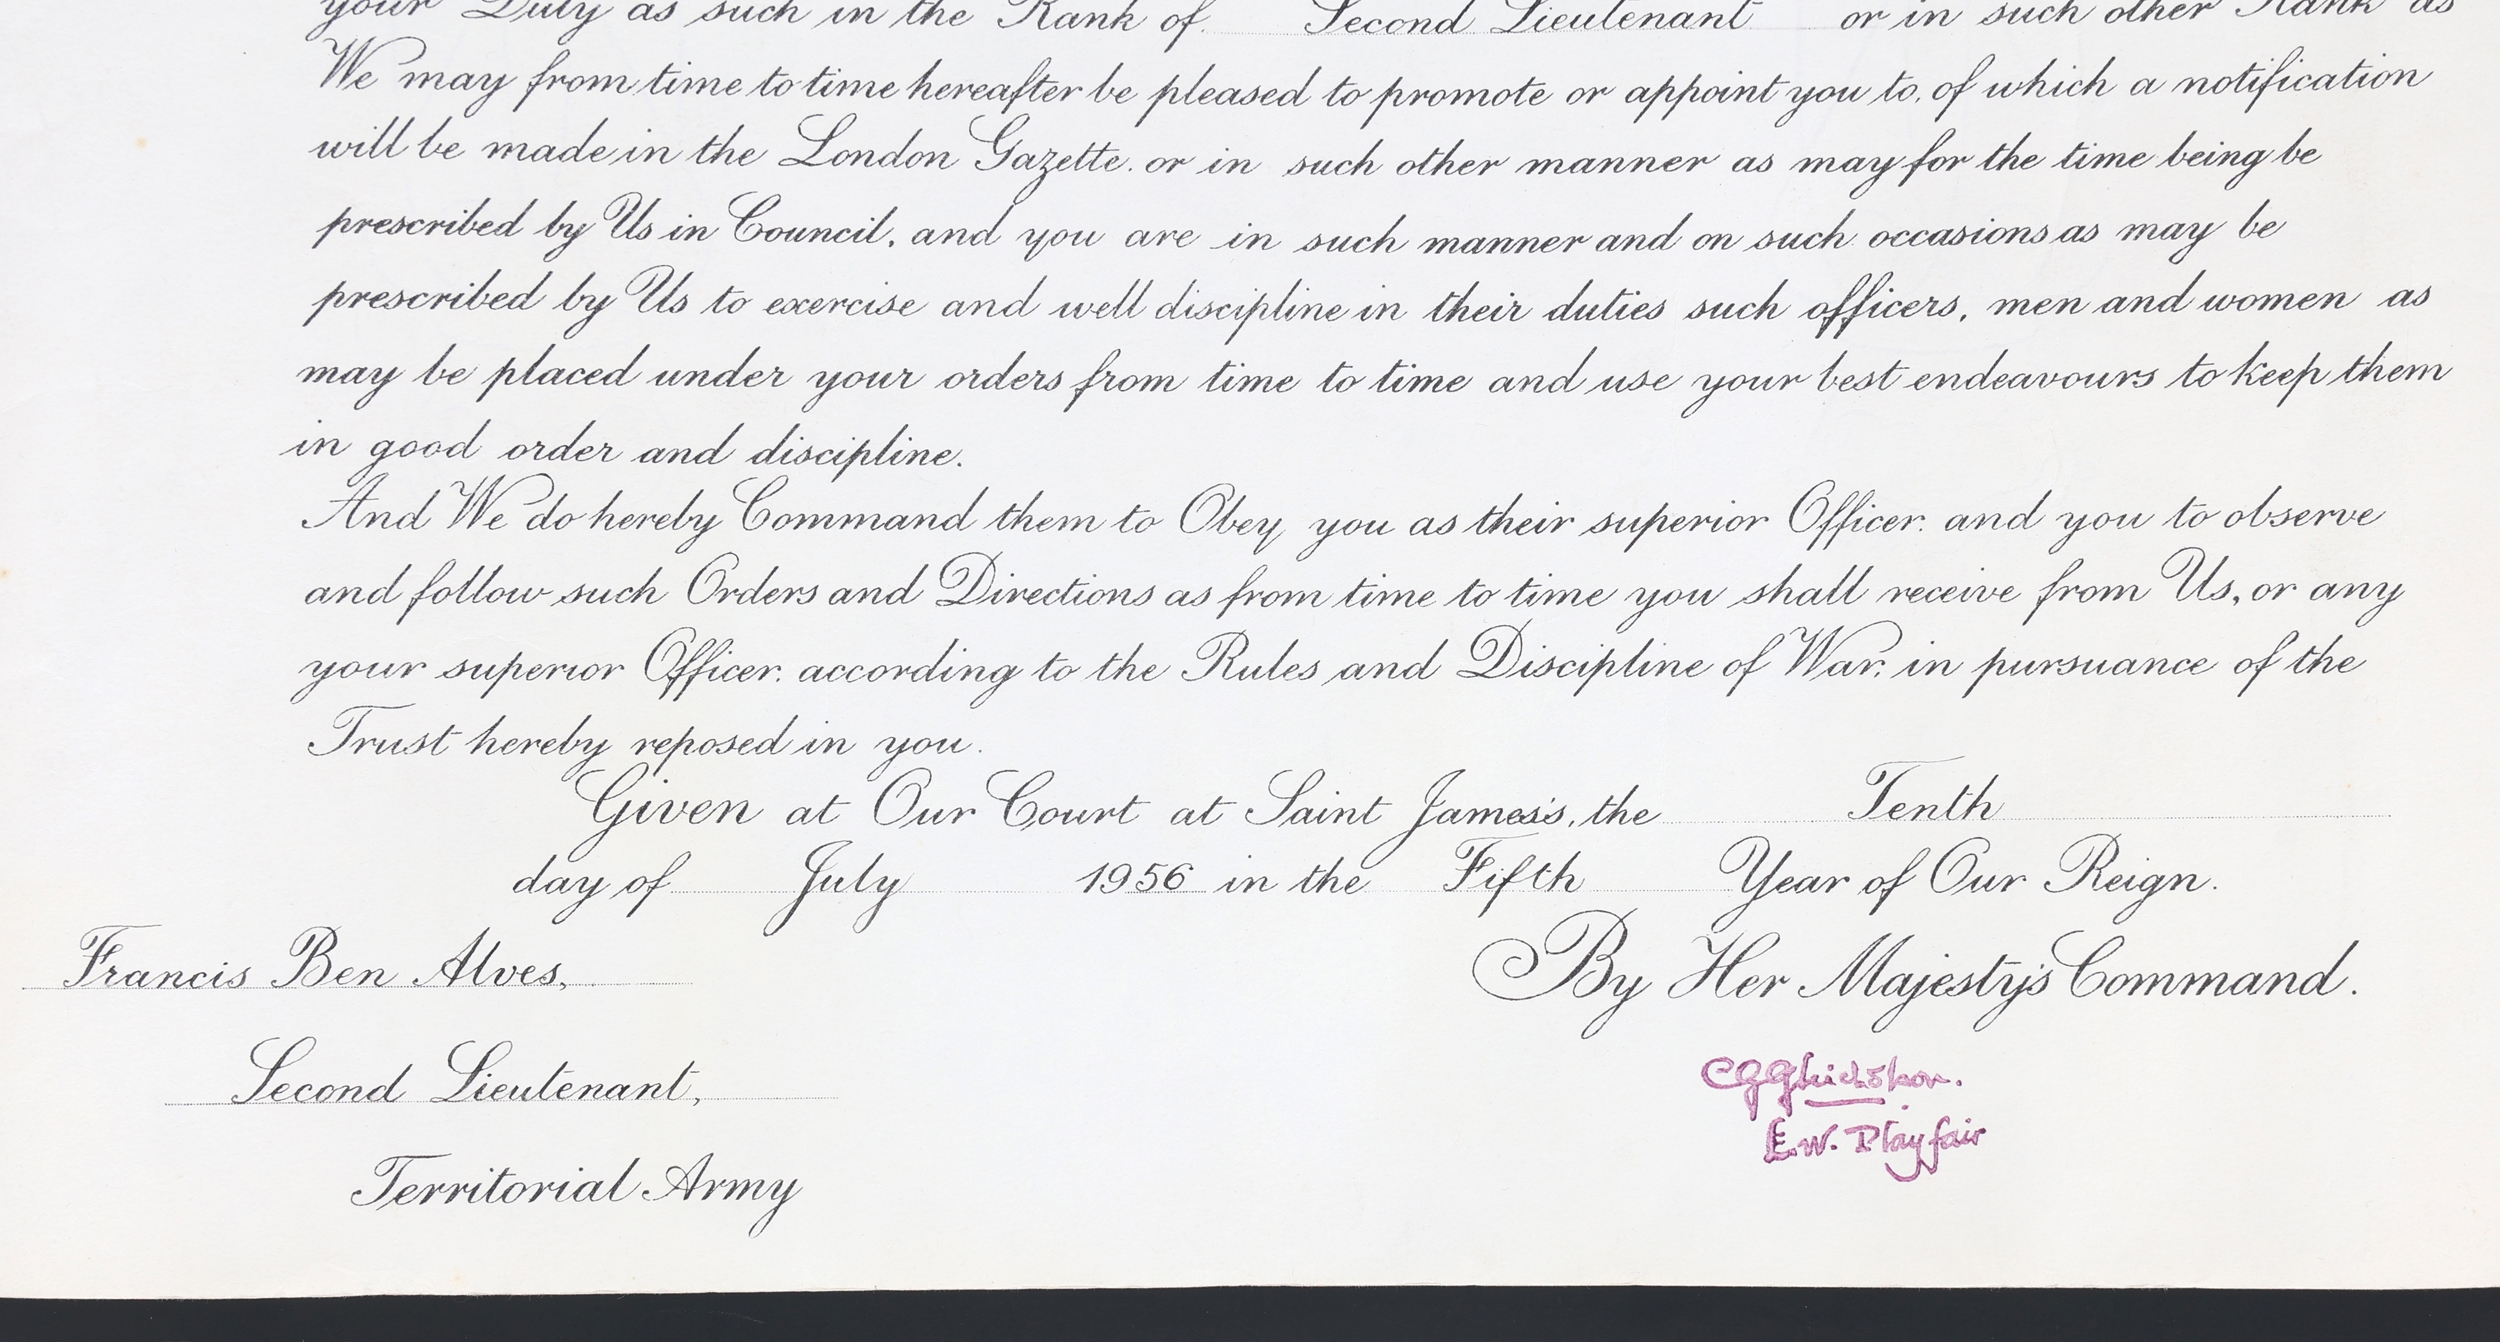 your Duty as such in the Rank of Second Lieutenant or in such other Rank as
We may from time to time hereafter be pleased to promote or appoint you to, of which a notification
will be made in the London Gazette, or in such other manner as may for the time being be
prescribed by Us in Council, and you are in such manner and on such occasions as may be
prescribed by Us to exercise and well discipline in their duties such officers, men and women as
may be placed under your orders from time to time and use your best endeavours to keep them
in good order and discipline.
And We do hereby Command them to Obey you as their superior Officer, and you to observe
and follow such Orders and Directions as from time to time you shall receive from Us, or any
your superior Officer, according to the Rules and Discipline of War, in pursuance of the
Trust hereby reposed in you.
Given at Our Court at Saint James's, the Tenth
day of July 1956 in the Fifth Year of Our Reign.
By Her Majesty's Command.
Francis Ben Alves,
Second Lieutenant,
Territorial Army
E.W. Playfair